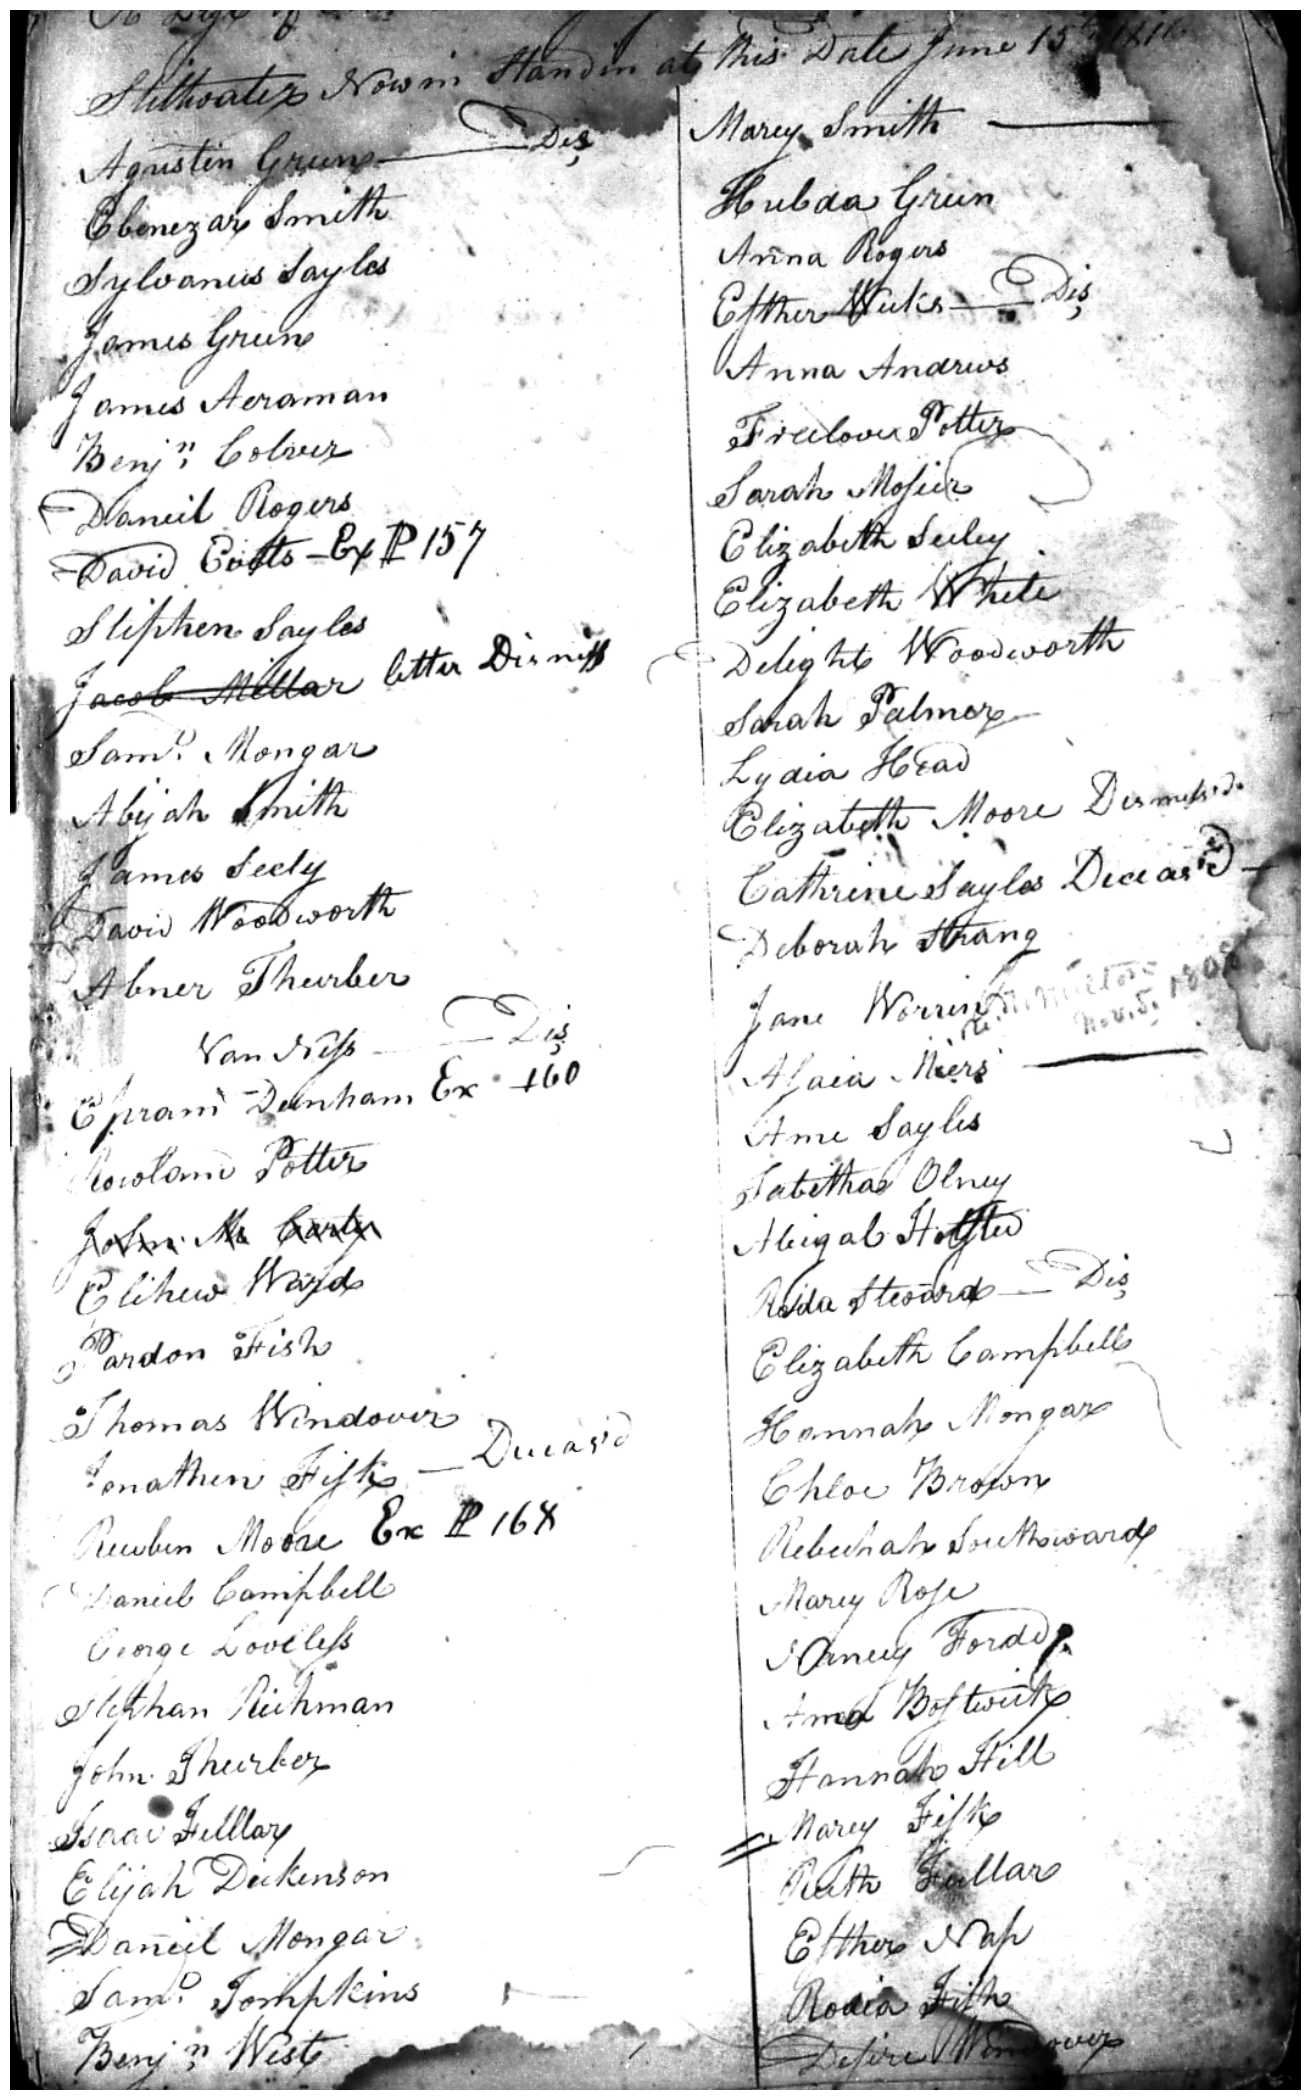 Stillwater Now in Standin at this Date June 15th
Agustin Green Dis
Ebenezar Smith
Sylvanus Sayles
James Green
James Aeraman
Benjn Colver
Daneil Rogers
David Cutts Ex P 157
Stiphen Sayles
Jacob Millar letter Dismiss
Samll Mongar
Abijah Smith
James Seely
David Woodworth
Abner Thurber
Van Ness Dis
Epraim Dunham Ex 160
Rowland Potter
John Mc Carty
Elihew Ward
Pardon Fish
Thomas Windover
Jonathen Fisk Deceas'd
Reuben Moore Ex P 168
Daneil Campbell
George Loveless
Stephan Richman
John Thurber
Isaac Fulllar
Elijah Dickenson
Daneil Mongar
Saml Tompkins
Benjn West
Marey Smith
Hulda Green
Anna Rogers
Esther Weeks Dis
Anna Andrews
Freelove Potter
Sarah Mosier
Elizabeth Seeley
Elizabeth White
Delight Woodworth
Sarah Palmer
Lydia Head
Elizabeth Moore Dismiss'd
Cathrine Sayles Deceas'd
Deborah Strang
Jane Worrin Nov. 5. 1808
Asaia Niers
Ame Sayles
Tabitha Olney
Abigal
Steward Dis
Elizabeth Campbell
Hannah Mongar
Chloe Brown
Rebechah Southward
Marey Rose
Forde
Ama Bostwick
Hannah Hill
Marey Fisk
Ruth Fullar
Esther Nap
Rodia Fish
Desire Windover